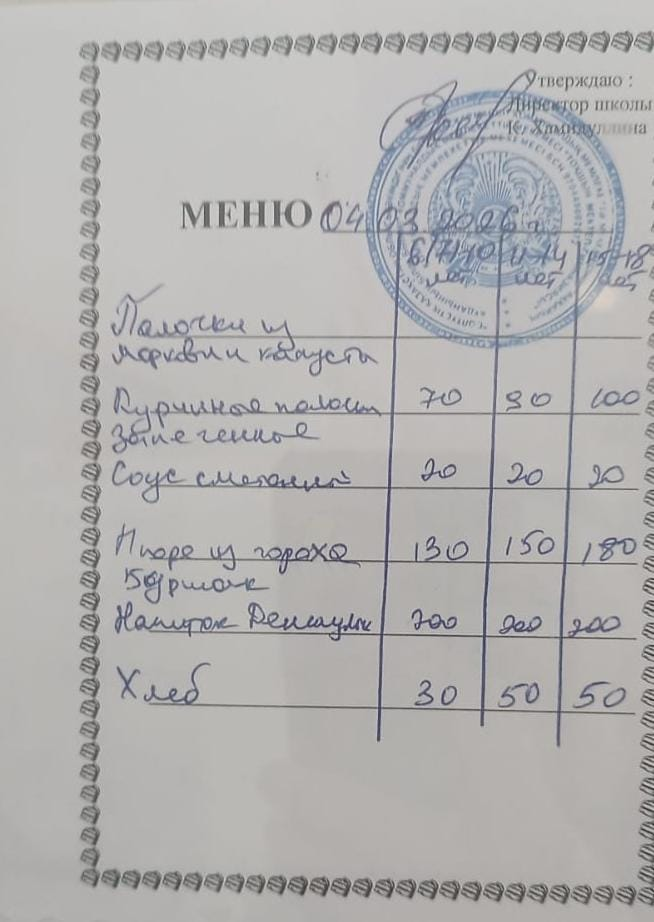 Утверждаю :
Директор школы
К. Хамидуллина
МЕНЮ 04 03 2026 г
6(7)-10 11-14 15-18
лет лет лет
Палочки из
моркови и капусты
Куриные палочки 70 90 100
запеченные
Соус сметаный 20 20 20
Пюре из гороха 130 150 180
Бұршақ
Напиток Денсаулық 200 200 200
Хлеб 30 50 50